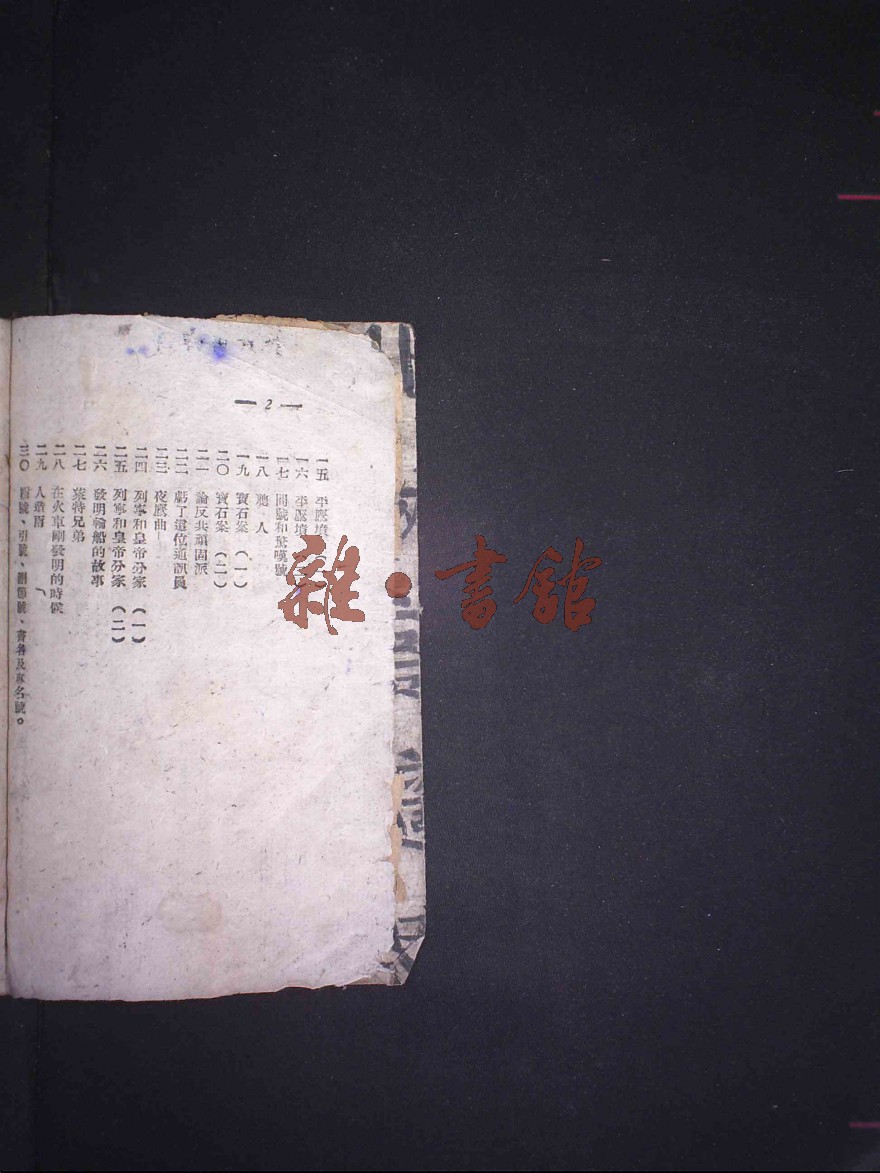 — 2 —
一五 平墳
一六 平墳
一七 問號和驚嘆號
一八 獵人
一九 寶石案（一）
二〇 寶石案（二）
二一 論反共頑固派
二二 虧了這位通訊員
二三 夜鶯曲
二四 列寧和皇帝分家（一）
二五 列寧和皇帝分家（二）
二六 發明輪船的故事
二七 萊特兄弟
二八 在火車剛發明的時候
二九 人造雨
三〇 冒號、引號、刪節號、書名及專名號。
雜·書館